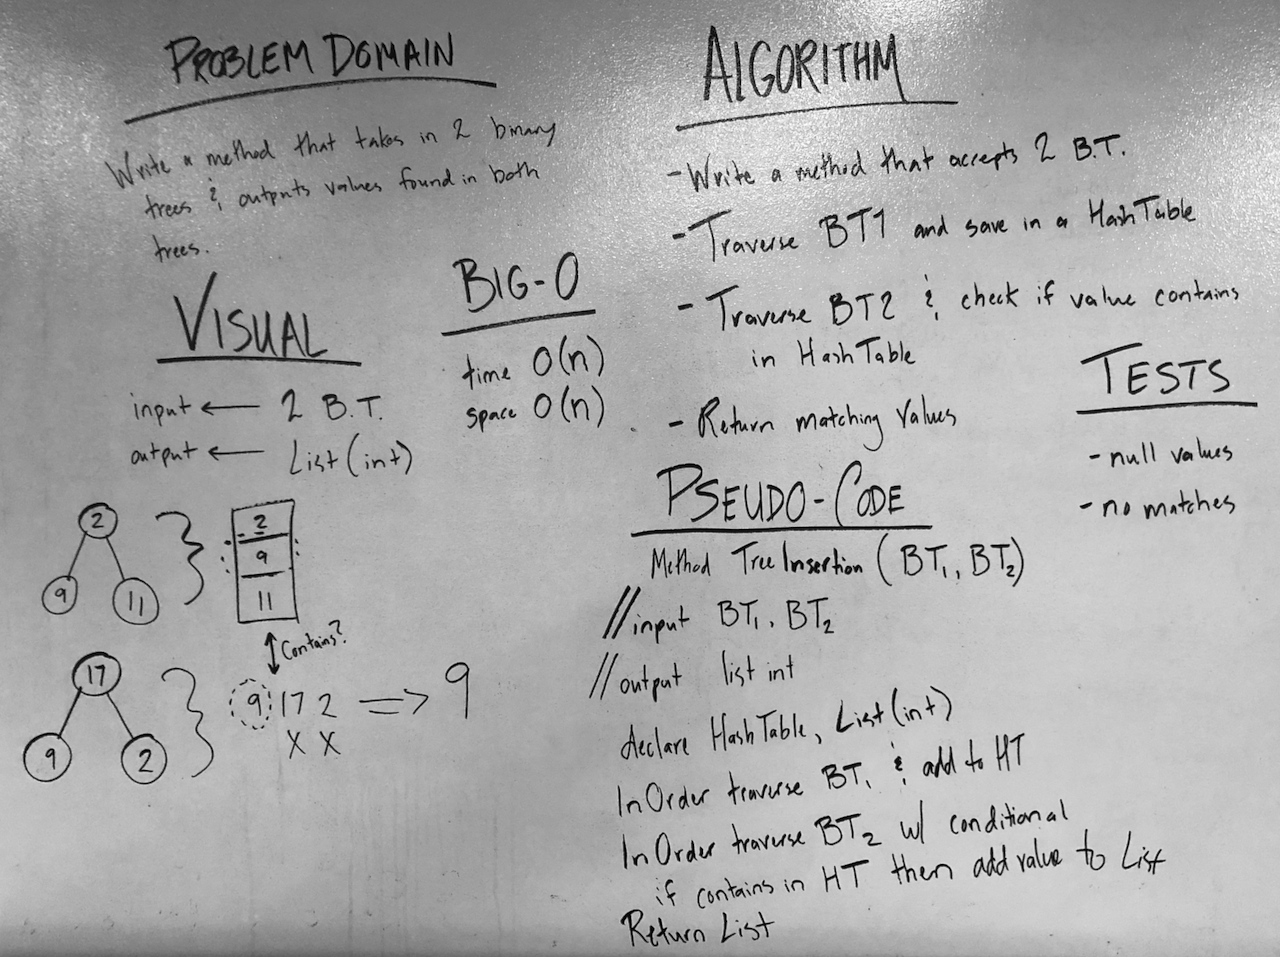 PROBLEM DOMAIN
Write a method that takes in 2 binary
trees & outputs values found in both
trees.
VISUAL
input ← 2 B.T.
output ← List(int)
2
9 11
2
9
11
Contains?
17
9 2
9 17 2 => 9
X X
BIG-O
time O(n)
space O(n)
ALGORITHM
- Write a method that accepts 2 B.T.
- Traverse BT1 and save in a HashTable
- Traverse BT2 & check if value contains
in HashTable
- Return matching values
TESTS
- null values
- no matches
PSEUDO-CODE
Method TreeInsertion (BT₁, BT₂)
//input BT₁, BT₂
//output list int
declare HashTable, List(int)
InOrder traverse BT₁ & add to HT
InOrder traverse BT₂ w/ conditional
if contains in HT then add value to List
Return List